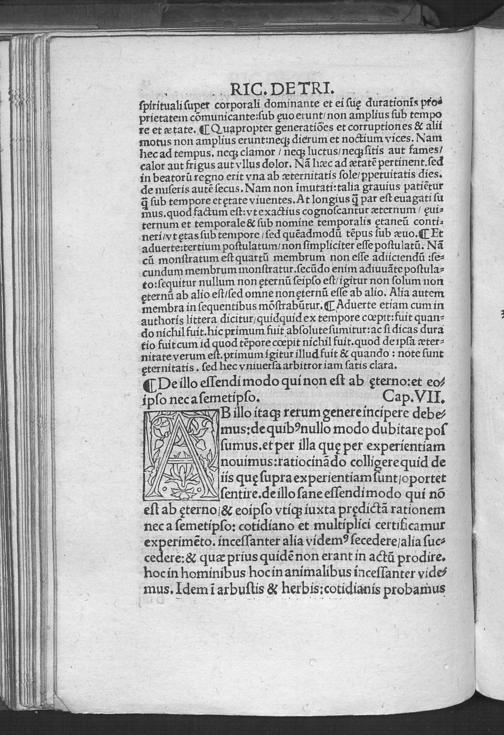 RIC. DE TRI.
spirituali super corporali dominante et ei suę durationis pro⸗
prietatem cōmunicante:sub quo erunt/non amplius sub tempo
re et ætate. ¶ Quapropter generatiões et corruptiones & alii
motus non amplius erunt:neqꝫ dierum et noctium vices. Nam
hec ad tempus, neqꝫ clamor / neqꝫ luctus/neqꝫ sitis aut fames/
calor aut frigus aut vllus dolor. Nā hæc ad ætatē pertinent.sed
in beatorū regno erit vna ab æternitatis sole/ppetuitatis dies.
de miseris autē secus. Nam non imutati:talia grauius patiētur
q̄ sub tempore et ętate viuentes. At longius q̄ par est euagati su
mus.quod factum est:vt exactius cognoscantur æternum/ ęui⸗
ternum et temporale & sub nomine temporalis ętaneū conti⸗
neri/vt ętas sub tempore/sed quēadmodū tēpus sub æuo. ¶ Et
aduerte:tertium postulatum/non simpliciter esse postulatū. Nā
cū monstratum est quartū membrum non esse adiiciendū :se⸗
cundum membrum monstratur.secūdo enim adiuuāte postula⸗
to:sequitur nullum non ęternū seipso est/igitur non solum non
ęternū ab alio est/sed omne non ęternū esse ab alio. Alia autem
membra in sequentibus mōstrabūtur. ¶ Aduerte etiam cum in
authoris littera dicitur/quidquid ex tempore cœpit:fuit quan⸗
do nichil fuit.hic primum fuit absolute sumitur:ac si dicas dura
tio fuit cum id quod tēpore cœpit nichil fuit.quod de ipsa æter⸗
nitate verum est.primum igitur illud fuit & quando : note sunt
ęternitatis . sed hęc vniuersa arbitror iam satis clara.
¶ De illo essendi modo qui non est ab ęterno:et eo⸗
ipso nec a semetipso. Cap.VII.
AB illo itaqꝫ rerum genere incipere debe⸗
mus:de quibꝰ nullo modo dubitare pos
sumus.et per illa quę per experientiam
nouimus:ratiocinādo colligere quid de
iis quę supra experientiam sunt/oportet
sentire.de illo sane essendi modo qui nō
est ab ęterno/& eoipso vtiqꝫ iuxta prędictā rationem
nec a semetipso: cotidiano et multiplici certificamur
experimēto. incessanter alia videmꝰ secedere/alia suc⸗
cedere:& quæ prius quidē non erant in actū prodire.
hoc in hominibus hoc in animalibus incessanter vide⸗
mus. Idem ī arbustis & herbis:cotidianis probamus